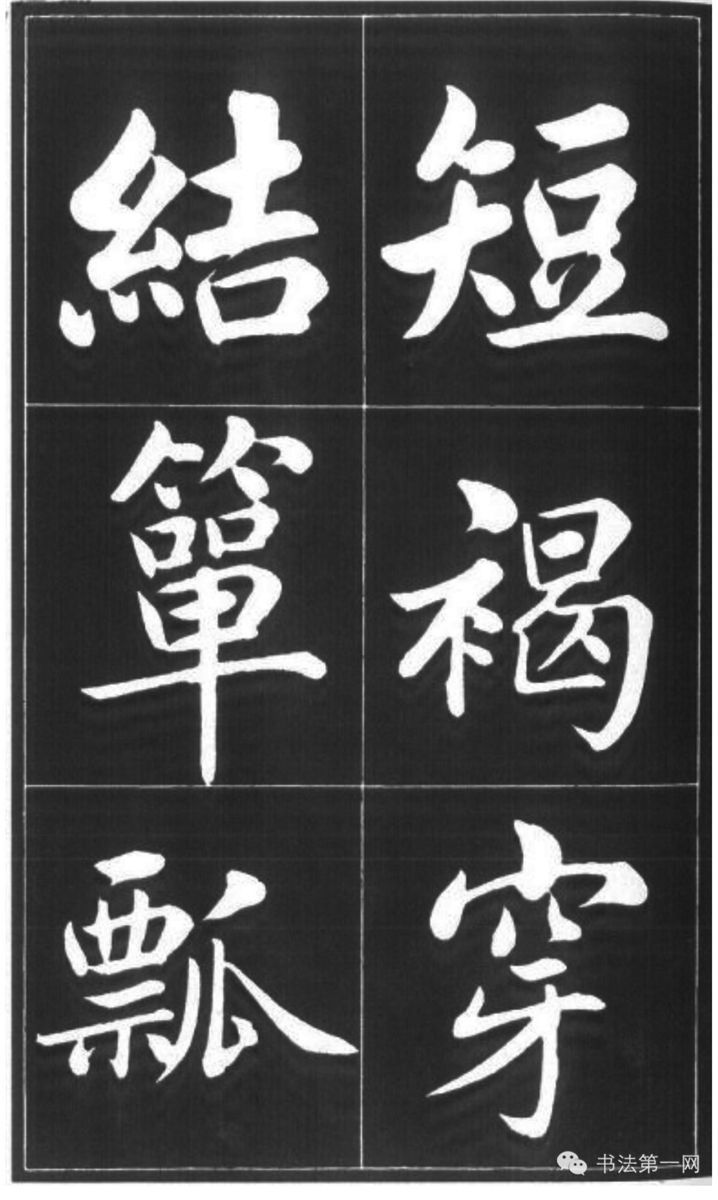 短褐穿
結簞瓢
书法第一网